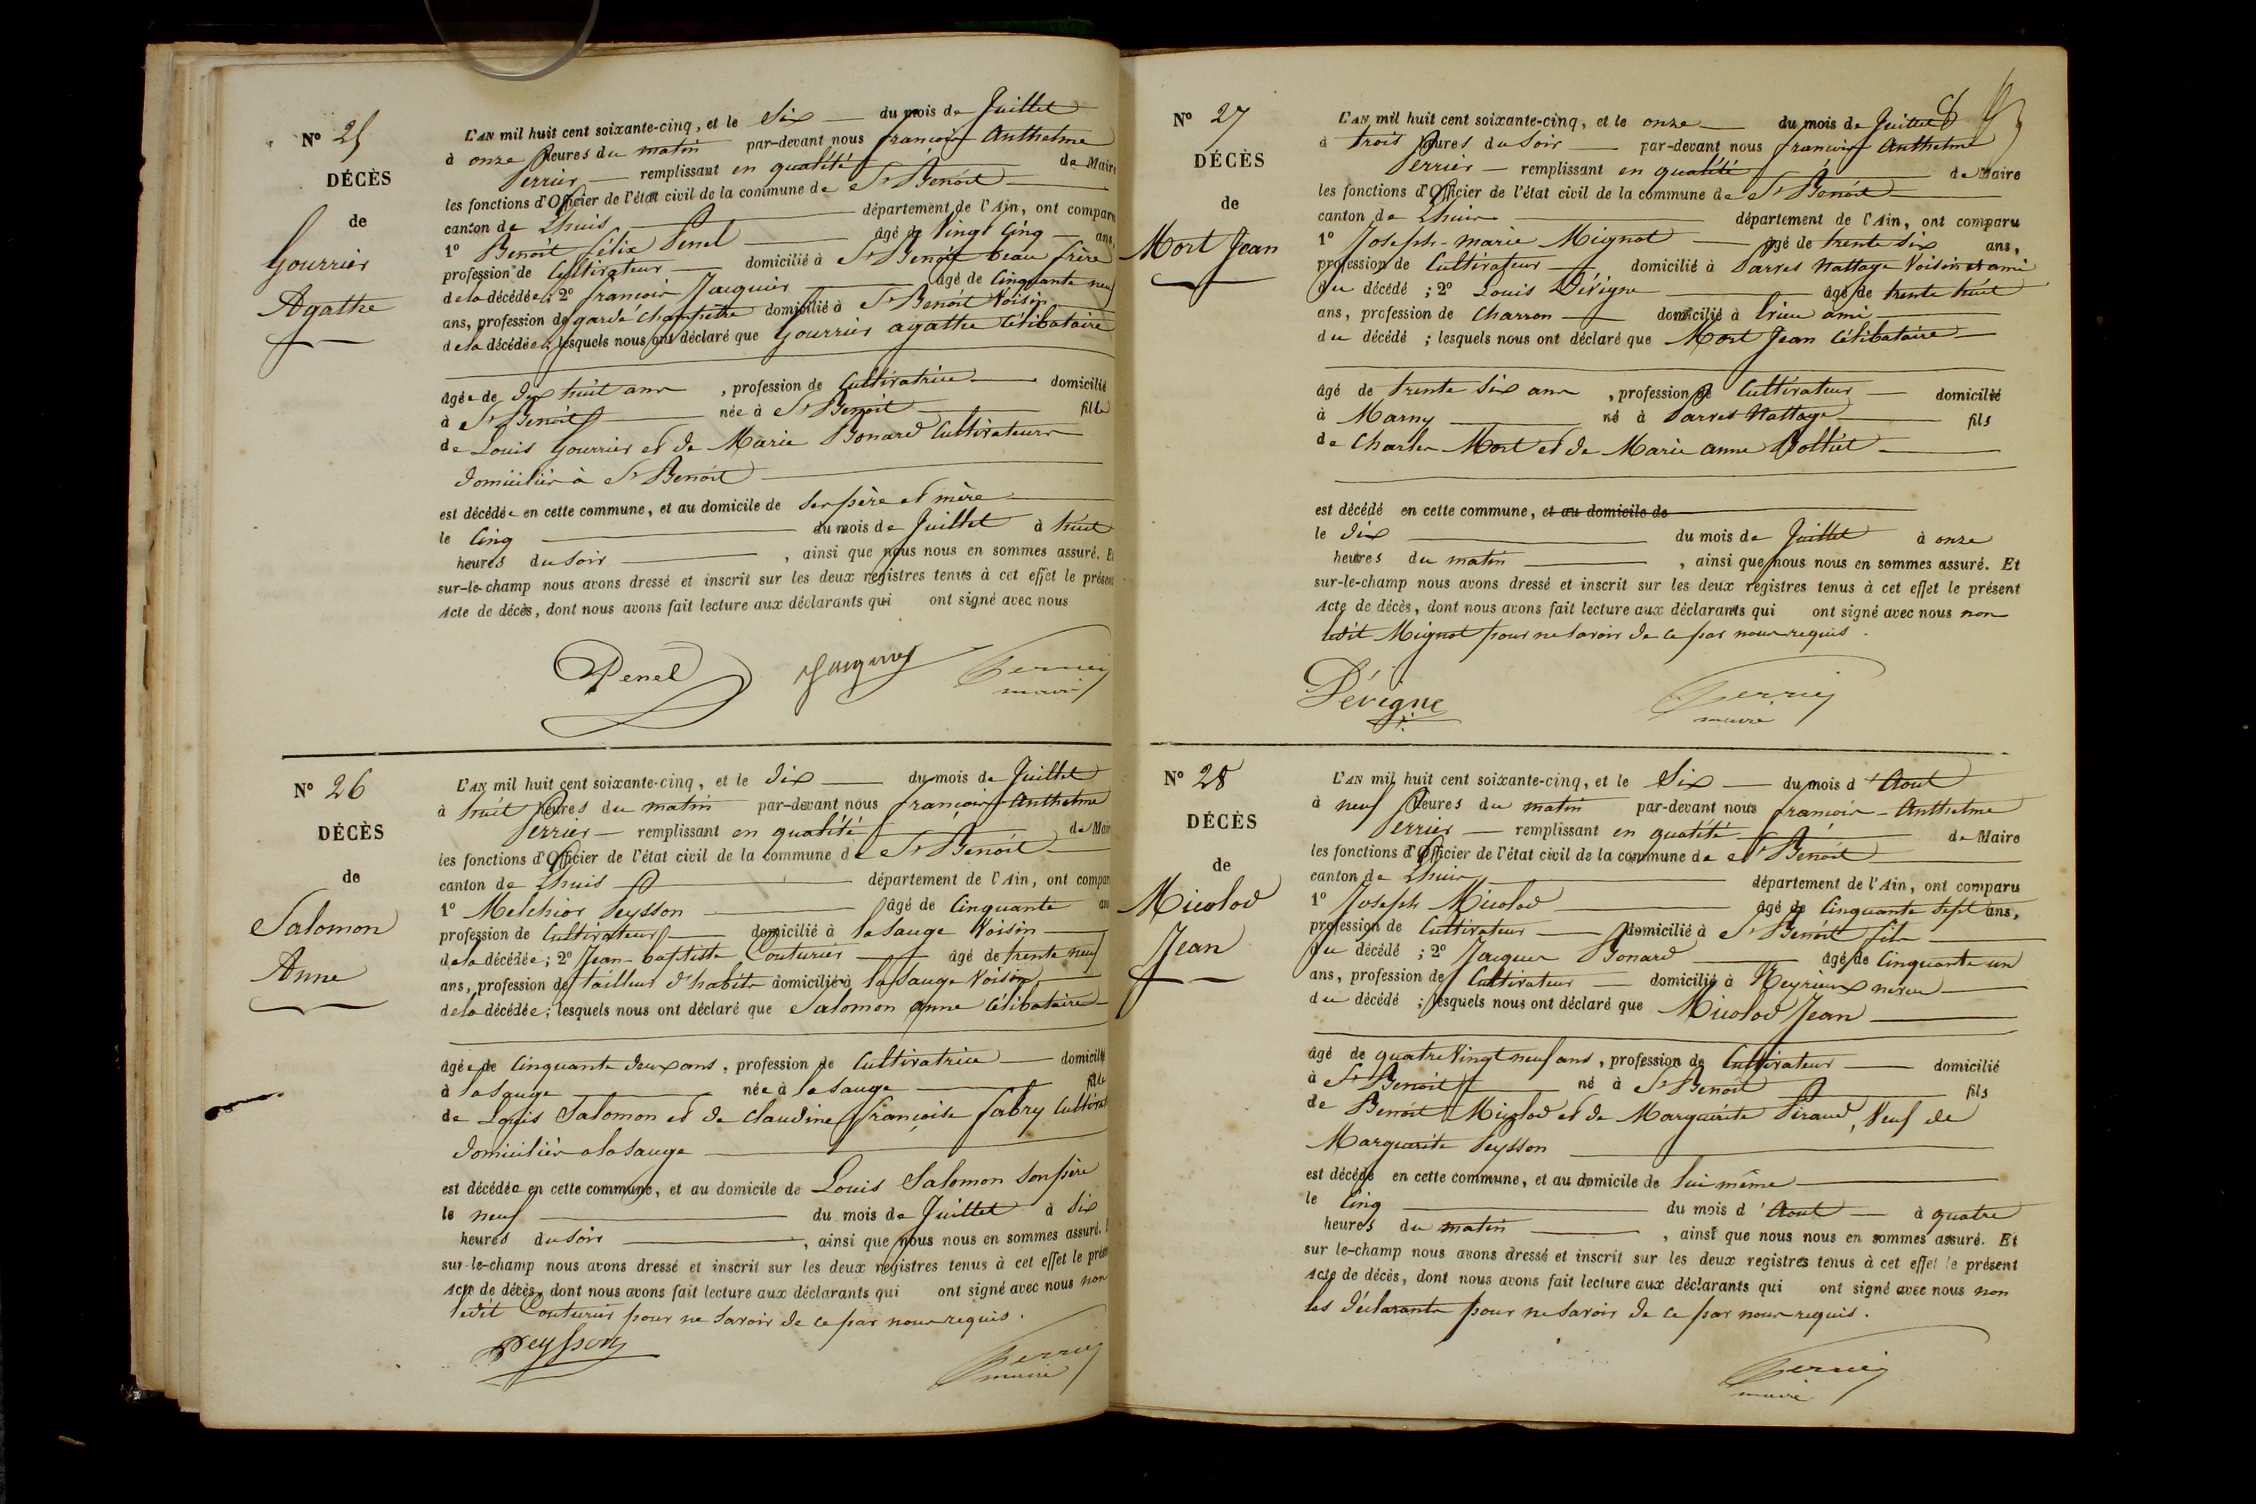 N° 25
DÉCÈS
de
Gourrier
Agathe
L'AN mil huit cent soixante-cinq, et le Six du mois de Juillet
à onze heures du matin par-devant nous françois Anthelme
Perrier remplissant en qualité de Maire
les fonctions d'Officier de l'état civil de la commune de St Benoit
canton de Lhuis département de l'Ain, ont comparu
1° Benoît félix Penel âgé de Vingt Cinq ans,
profession de Cultivateur domicilié à St Benoit beau frère
de la décédée; 2° françois Jacquier âgé de Cinquante neuf
ans, profession de garde Champêtre domicilié à St Benoit Voisin
de la décédée; lesquels nous ont déclaré que Gourrier agathe Célibataire
âgée de dix huit ans, profession de Cultivatrice domicilié
à St Benoit née à St Benoit fille
de Louis Gourrier et de Marie Bonard Cultivateurs
domiciliés à St Benoit
est décédée en cette commune, et au domicile de ses père et mère
le Cinq du mois de Juillet à huit
heures du soir, ainsi que nous nous en sommes assuré. Et
sur-le-champ nous avons dressé et inscrit sur les deux registres tenus à cet effet le présent
Acte de décès, dont nous avons fait lecture aux déclarants qui ont signé avec nous
Penel Jacquier Perrier
maire
N° 26
DÉCÈS
de
Salomon
Anne
L'AN mil huit cent soixante-cinq, et le dix du mois de Juillet
à huit heures du matin par-devant nous françois Anthelme
Perrier remplissant en qualité de Maire
les fonctions d'Officier de l'état civil de la commune de St Benoit
canton de Lhuis département de l'Ain, ont comparu
1° Melchior Peysson âgé de Cinquante ans
profession de Cultivateur domicilié à la Sauge Voisin
de la décédée; 2° Jean-baptiste Couturier âgé de trente neuf
ans, profession de tailleur d'habits domicilié à la Sauge Voisin
de la décédée; lesquels nous ont déclaré que Salomon anne Célibataire
âgée de Cinquante deux ans, profession de Cultivatrice domicilié
à la Sauge née à la Sauge fille
de Louis Salomon et de Claudine françoise fabry Cultivat
domiciliés a la Sauge
est décédée en cette commune, et au domicile de Louis Salomon son père
le neuf du mois de Juillet à Six
heures du soir, ainsi que nous nous en sommes assuré.
sur-le-champ nous avons dressé et inscrit sur les deux registres tenus à cet effet le présent
Acte de décès, dont nous avons fait lecture aux déclarants qui ont signé avec nous non
ledit Couturier pour ne savoir de ce par nous requis.
Peysson Perrier
maire
N° 27
DÉCÈS
de
Mort Jean
L'AN mil huit cent soixante-cinq, et le onze du mois de Juillet
à trois heures du soir par-devant nous françois Anthelme
Perrier remplissant en qualité de Maire
les fonctions d'Officier de l'état civil de la commune de St Benoit
canton de Lhuis département de l'Ain, ont comparu
1° Joseph-marie Mignot âgé de trente six ans,
profession de Cultivateur domicilié à Parves Nattage Voisin et ami
du décédé; 2° Louis Dévigne âgé de trente huit
ans, profession de Charron domicilié à brieu ami
du décédé; lesquels nous ont déclaré que Mort Jean Célibataire
âgé de trente six ans, profession de Cultivateur domicilié
à Marny né à Parves Nattage fils
de Charles Mort et de Marie anne Bolliet
est décédé en cette commune, et au domicile de
le dix du mois de Juillet à onze
heures du matin, ainsi que nous nous en sommes assuré. Et
sur-le-champ nous avons dressé et inscrit sur les deux registres tenus à cet effet le présent
Acte de décès, dont nous avons fait lecture aux déclarants qui ont signé avec nous non
ledit Mignot pour ne savoir de ce par nous requis.
Dévigne Perrier
maire
N° 28
DÉCÈS
de
Micolod
Jean
L'AN mil huit cent soixante-cinq, et le Six du mois d'Aout
à neuf heures du matin par-devant nous françois-Anthelme
Perrier remplissant en qualité de Maire
les fonctions d'Officier de l'état civil de la commune de St Benoit
canton de Lhuis département de l'Ain, ont comparu
1° Joseph Micolod âgé de Cinquante Sept ans,
profession de Cultivateur domicilié à St Benoit fils
du décédé; 2° Jacques Bonard âgé de Cinquante un
ans, profession de Cultivateur domicilié à Meyrieux neveu
du décédé; lesquels nous ont déclaré que Micolod Jean
âgé de quatre Vingt neuf ans, profession de Cultivateur domicilié
à St Benoit né à St Benoit fils
de Benoit Micolod et de Marguerite Piraud, Veuf de
Marguerite Peysson
est décédé en cette commune, et au domicile de lui même
le Cinq du mois d'Aout à quatre
heures du matin, ainsi que nous nous en sommes assuré. Et
sur le-champ nous avons dressé et inscrit sur les deux registres tenus à cet effet le présent
Acte de décès, dont nous avons fait lecture aux déclarants qui ont signé avec nous non
les déclarants pour ne savoir de ce par nous requis.
Perrier
maire